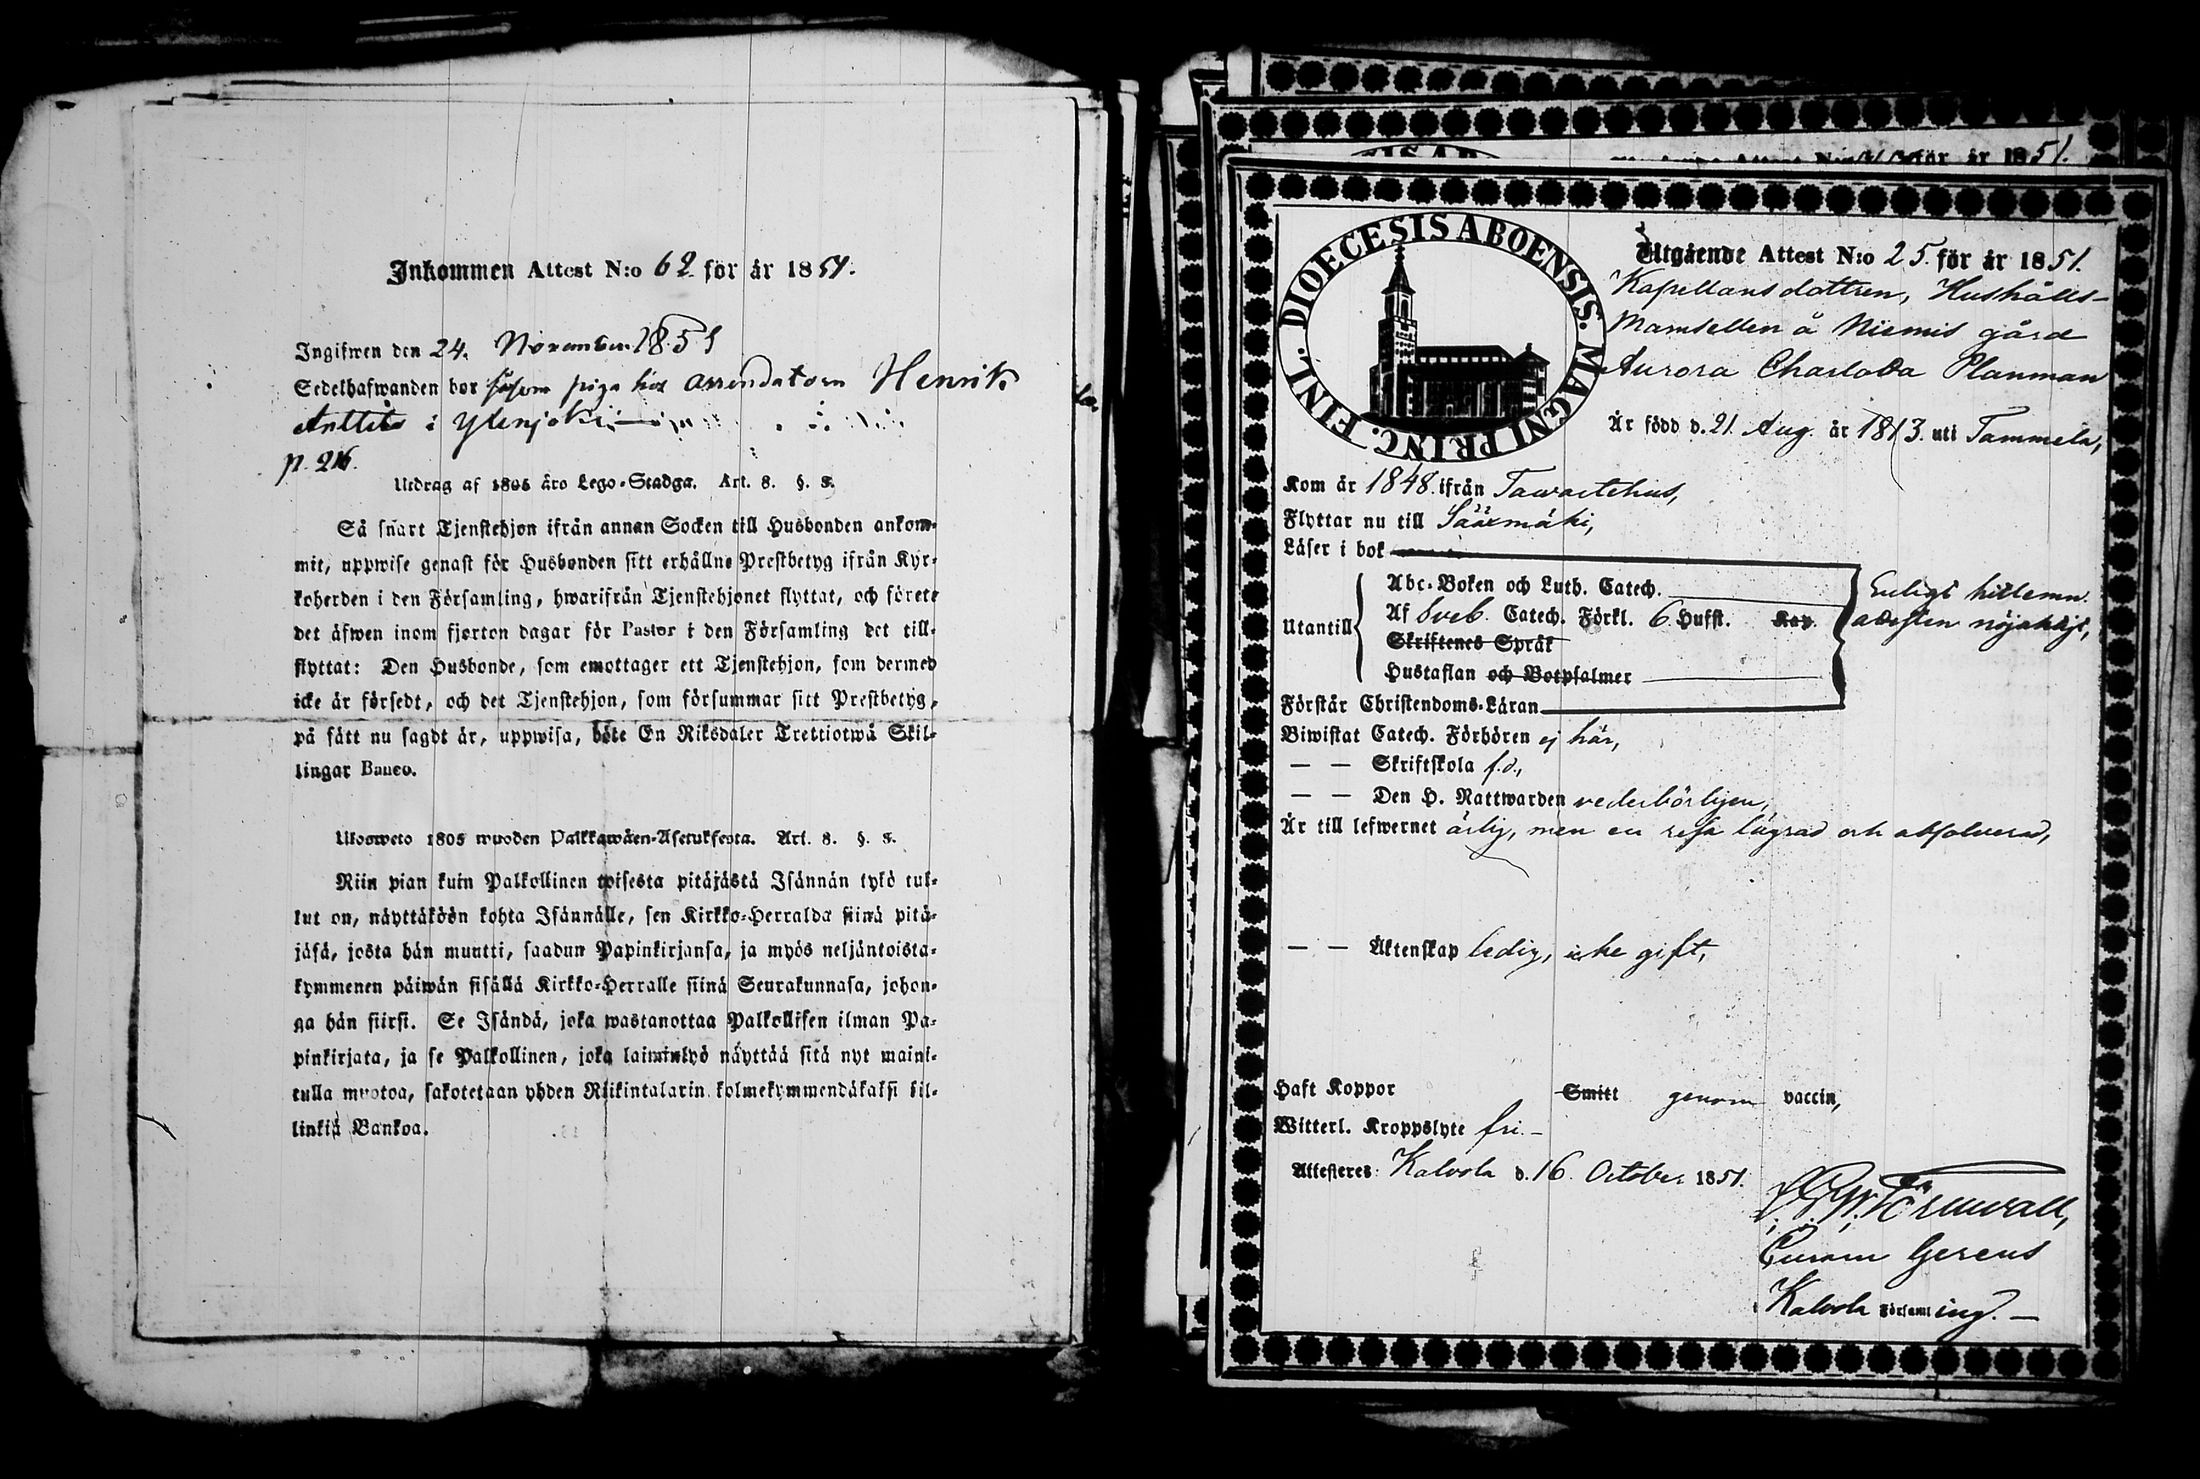 Inkommen Attest N:o 62. för år 1851.
Ingifwen den 24. November 1851
Sedelhafwanden bor såsom piga hos arrendatorn Henrik
Anttila i Ylenjoki
p. 216.
Utdrag af 1805 års Lego-Stadga. Art. 8. §. 8.
Så snart Tjenstehjon ifrån annan Socken till Husbonden ankom-
mit, uppwise genast för Husbonden sitt erhållne Prestbetyg ifrån Kyr-
koherden i den Församling, hwarifrån Tjenstehjonet flyttat, och förete
det äfwen inom fjorton dagar för Pastor i den Församling det till-
flyttat: Den Husbonde, som emottager ett Tjenstehjon, som dermed
icke är försedt, och det Tjenstehjon, som försummar sitt Prestbetyg,
på sätt nu sagdt är, uppwisa, böte En Riksdaler Trettiotwå Skil-
lingar Banco.
Ulosweto 1805 wuoden Palkkawäen-Asetuksesta. Art. 8. §. 8.
Niin pian kuin Palkollinen toisesta pitäjästä Isännän tykö tul-
lut on, näyttäköön kohta Isännälle, sen Kirkko-Herralda siinä pitä-
jäsä, josta hän muutti, saadun Papinkirjansa, ja myös neljäntoista-
kymmenen päiwän sisällä Kirkko-Herralle siinä Seurakunnasa, johon-
ga hän siirsi. Se Isändä, joka wastanottaa Palkollisen ilman Pa-
pinkirjata, ja se Palkollinen, joka laiminlyö näyttää sitä nyt maini-
tulla muotoa, sakotetaan yhden Riikintalarin kolmekymmendäkaksi kil-
linkiä Bankoa.
DIOECESIS ABOENSIS. MAGNI PRINC. FINL.
för år 1851.
Utgående Attest N:o 25. för år 1851.
Kapellans dottren, Hushålls-
Mamsellen å Niemis gård
Aurora Charlotta Planman
Är född d. 21. Aug. år 1813. uti Tammela,
Kom år 1848. ifrån Tawastehus,
Flyttar nu till Säärmäki,
Läser i bok
Abc-Boken och Luth. Catech.
Utantill Af Sveb. Catech. Förkl. 6. Hufst. Kap.
Skriftenes Språk
Hustaflan och Botpsalmer
Enligt hitlemn.
attesten nöjaktigt,
Förstår Christendoms-Läran
Biwistat Catech. Förhören ej här,
— — Skriftskola f.d.,
— — Den H. Nattwarden vederbörligen,
Är till lefwernet ärlig, men en resa lägrad och absolverad,
— — Äktenskap ledig, icke gift,
Haft Koppor Smitt genom vaccin,
Witterl. Kroppslyte fri. –
Attesteras: Kalvola d. 16. October 1851.
Törnwall,
Curam Gerens
Kalvola Församling. —